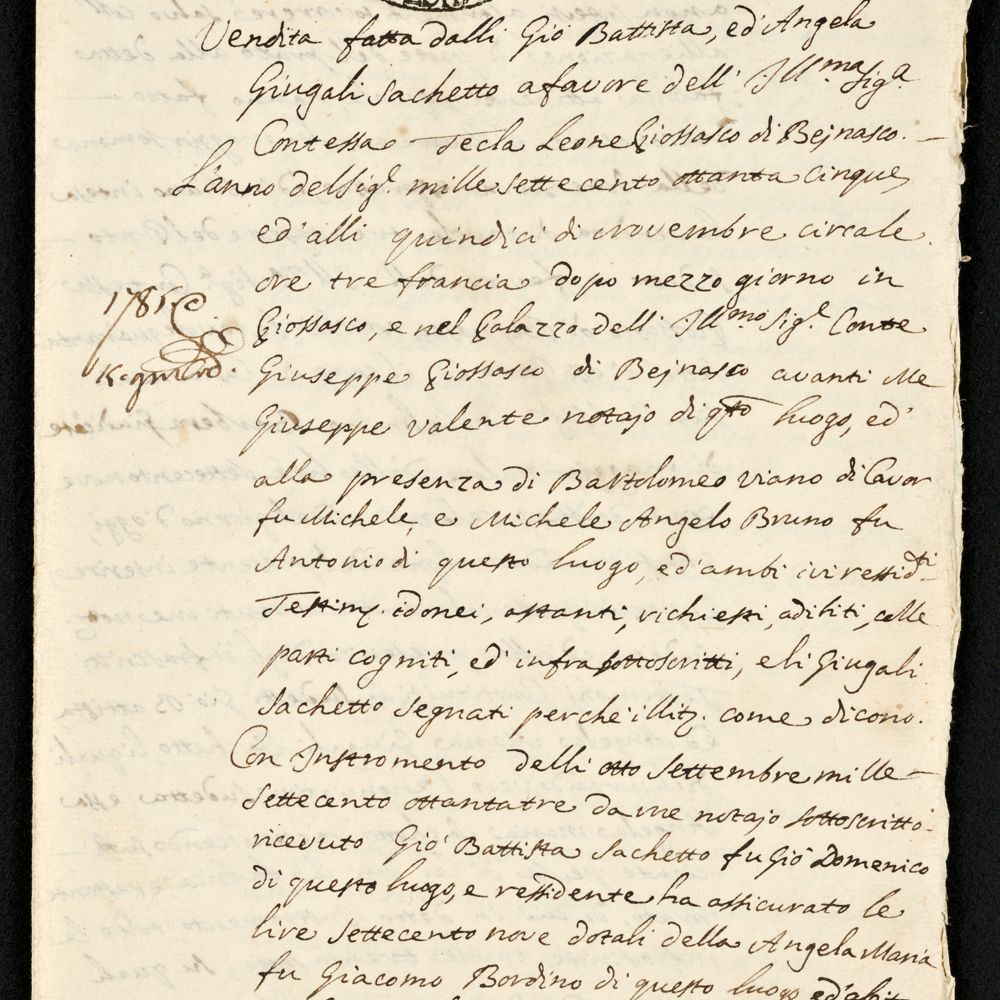 Vendita fatta dalli Gio Battista, ed' Angela
Giugali Sachetto a favore dell' Ill.ma Sig.a
Contessa Tecla Leone Piossasco di Bejnasco. —
L'anno del Sig.r mille settecento ottanta cinque,
ed' alli quindici di novembre circa le
ore tre francia dopo mezzo giorno in
Piossasco, e nel Palazzo dell' Ill.mo Sig.r Conte
1785
Giuseppe Piossasco di Bejnasco avanti Me
Giuseppe Valente notajo di q.sto luogo, ed'
alla presenza di Bartolomeo Viano di Cavor
fu Michele, e Michele Angelo Bruno fu
Antonio di questo luogo, ed' ambi ivi ressid.ti
Testimj. idonei, astanti, richiesti, adibiti, alle
parti cogniti, ed' infra sottoscritti, e li Giugali
Sachetto segnati perche illitj. come dicono.
Con Instromento delli otto Settembre mille —
settecento ottanta tre da me notajo sottoscritto
ricevuto Gio' Battista Sachetto fu Gio' Domenico
di questo luogo, e ressidente ha assicurato le
lire settecento nove dotali della Angela Maria
fu Giacomo Bordino di questo luogo